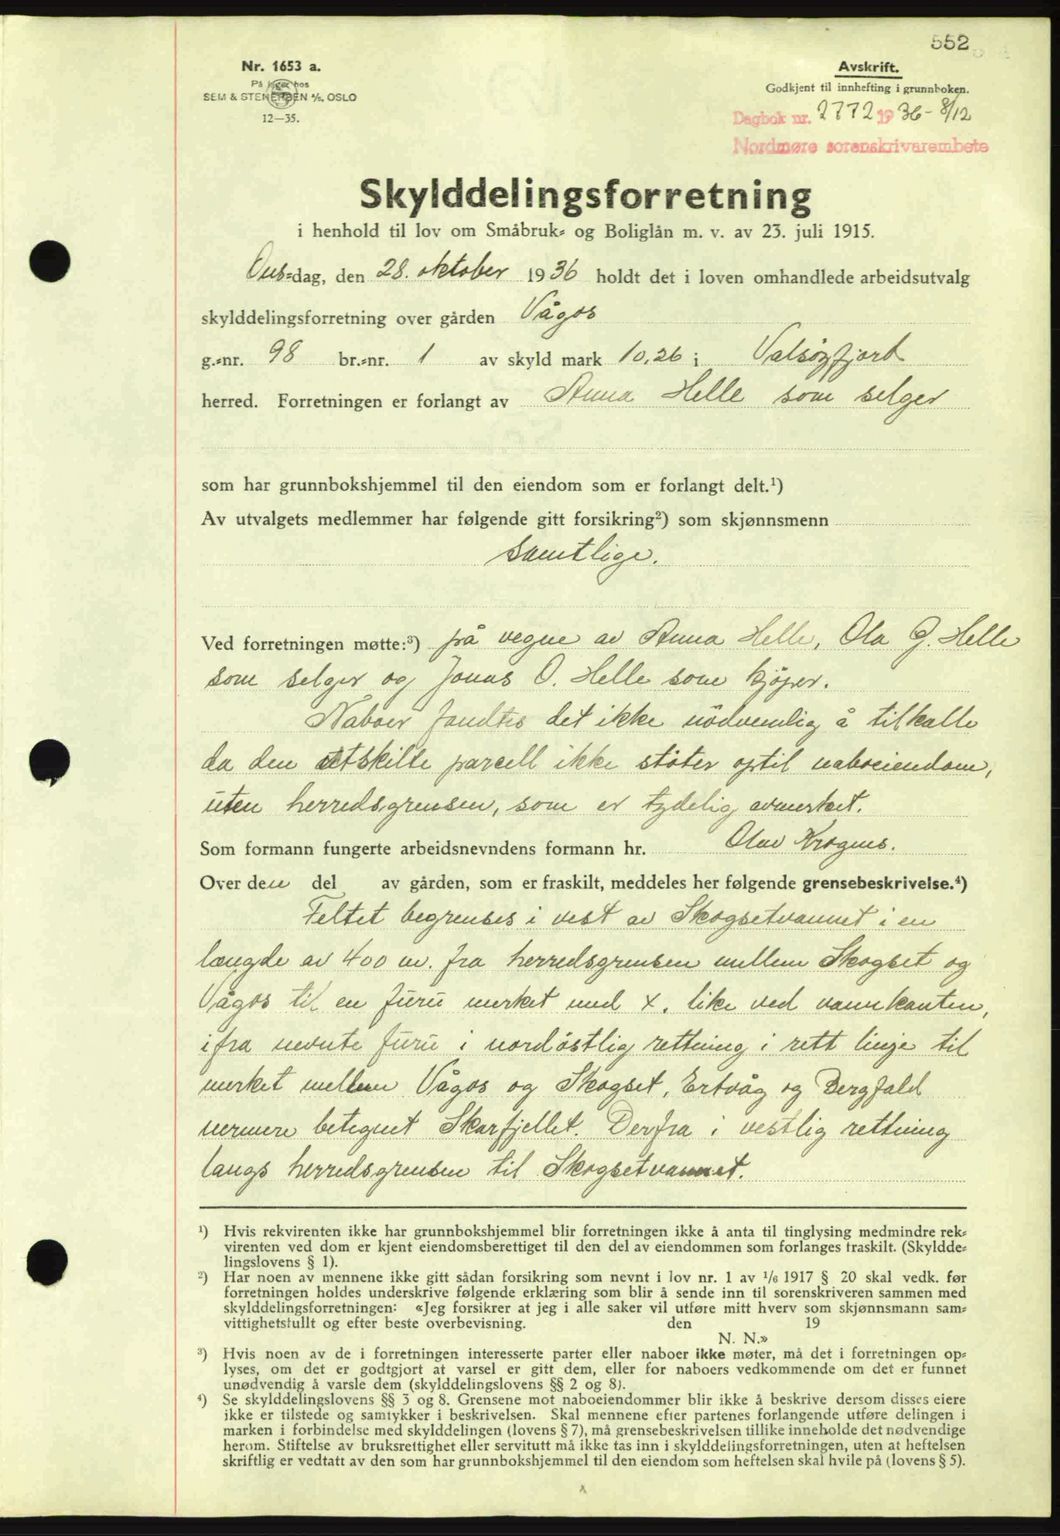 552
Nr. 1653 a.
På lager hos
SEM & STENERSEN A/S, OSLO
12—35.
Avskrift.
Godkjent til innhefting i grunnboken.
Dagbok nr. 2772 1936 - 8/12
Nordmøre sorenskrivarembete
Skylddelingsforretning
i henhold til lov om Småbruk- og Boliglån m. v. av 23. juli 1915.
Ons-dag, den 28. oktober 1936 holdt det i loven omhandlede arbeidsutvalg
skylddelingsforretning over gården Vågos
g.-nr. 98 br.-nr. 1 av skyld mark 10,26 i Valsøyfjord
herred. Forretningen er forlangt av Anna Helle som selger
som har grunnbokshjemmel til den eiendom som er forlangt delt.¹)
Av utvalgets medlemmer har følgende gitt forsikring²) som skjønnsmenn
samtlige.
Ved forretningen møtte:³) på vegne av Anna Helle, Ola J. Helle
som selger og Jonas O. Helle som kjøper.
Naboer fandtes det ikke nödvendig å tilkalle
da den utskilte parcell ikke støter optil naboeiendom,
uten herredsgrensen, som er tydelig avmerket.
Som formann fungerte arbeidsnevndens formann hr. Olav Krognes.
Over den del av gården, som er fraskilt, meddeles her følgende grensebeskrivelse.⁴)
Feltet begrenses i vest av Skogsetvannet i en
længde av 400 m. fra herredsgrensen mellem Skogset og
Vågos til en furu merket med x. like ved vannkanten,
ifra nevnte furu i nordöstlig rettning i rett linje til
merket mellem Vågos og Skogset, Ertvåg og Bergfald
nermere betegnet Skarfjellet. Derfra i vestlig rettning
langs herredsgrensen til Skogsetvannet.
¹) Hvis rekvirenten ikke har grunnbokshjemmel blir forretningen ikke å anta til tinglysing medmindre rek-
virenten ved dom er kjent eiendomsberettiget til den del av eiendommen som forlanges fraskilt. (Skyldde-
lingslovens § 1).
²) Har noen av mennene ikke gitt sådan forsikring som nevnt i lov nr. 1 av ¹/₆ 1917 § 20 skal vedk. før
forretningen holdes underskrive følgende erklæring som blir å sende inn til sorenskriveren sammen med
skylddelingsforretningen: «Jeg forsikrer at jeg i alle saker vil utføre mitt hverv som skjønnsmann sam-
vittighetsfullt og efter beste overbevisning. den 19
N. N.»
³) Hvis noen av de i forretningen interesserte parter eller naboer ikke møter, må det i forretningen op-
lyses, om det er godtgjort at varsel er gitt dem, eller for naboers vedkommende om det er funnet
unødvendig å varsle dem (skylddelingslovens §§ 2 og 8).
⁴) Se skylddelingslovens §§ 3 og 8. Grensene mot naboeiendommer blir ikke å beskrive dersom disses eiere
ikke er tilstede og samtykker i beskrivelsen. Skal mennene efter partenes forlangende utføre delingen i
marken i forbindelse med skylddelingen (lovens § 7), må grensebeskrivelsen tillike inneholde det nødvendige
herom. Stiftelse av bruksrettighet eller servitutt må ikke tas inn i skylddelingsforretningen, uten at heftelsen
skriftlig er vedtatt av den som har grunnbokshjemmel til den eiendom som heftelsen skal hvile på (lovens § 5).